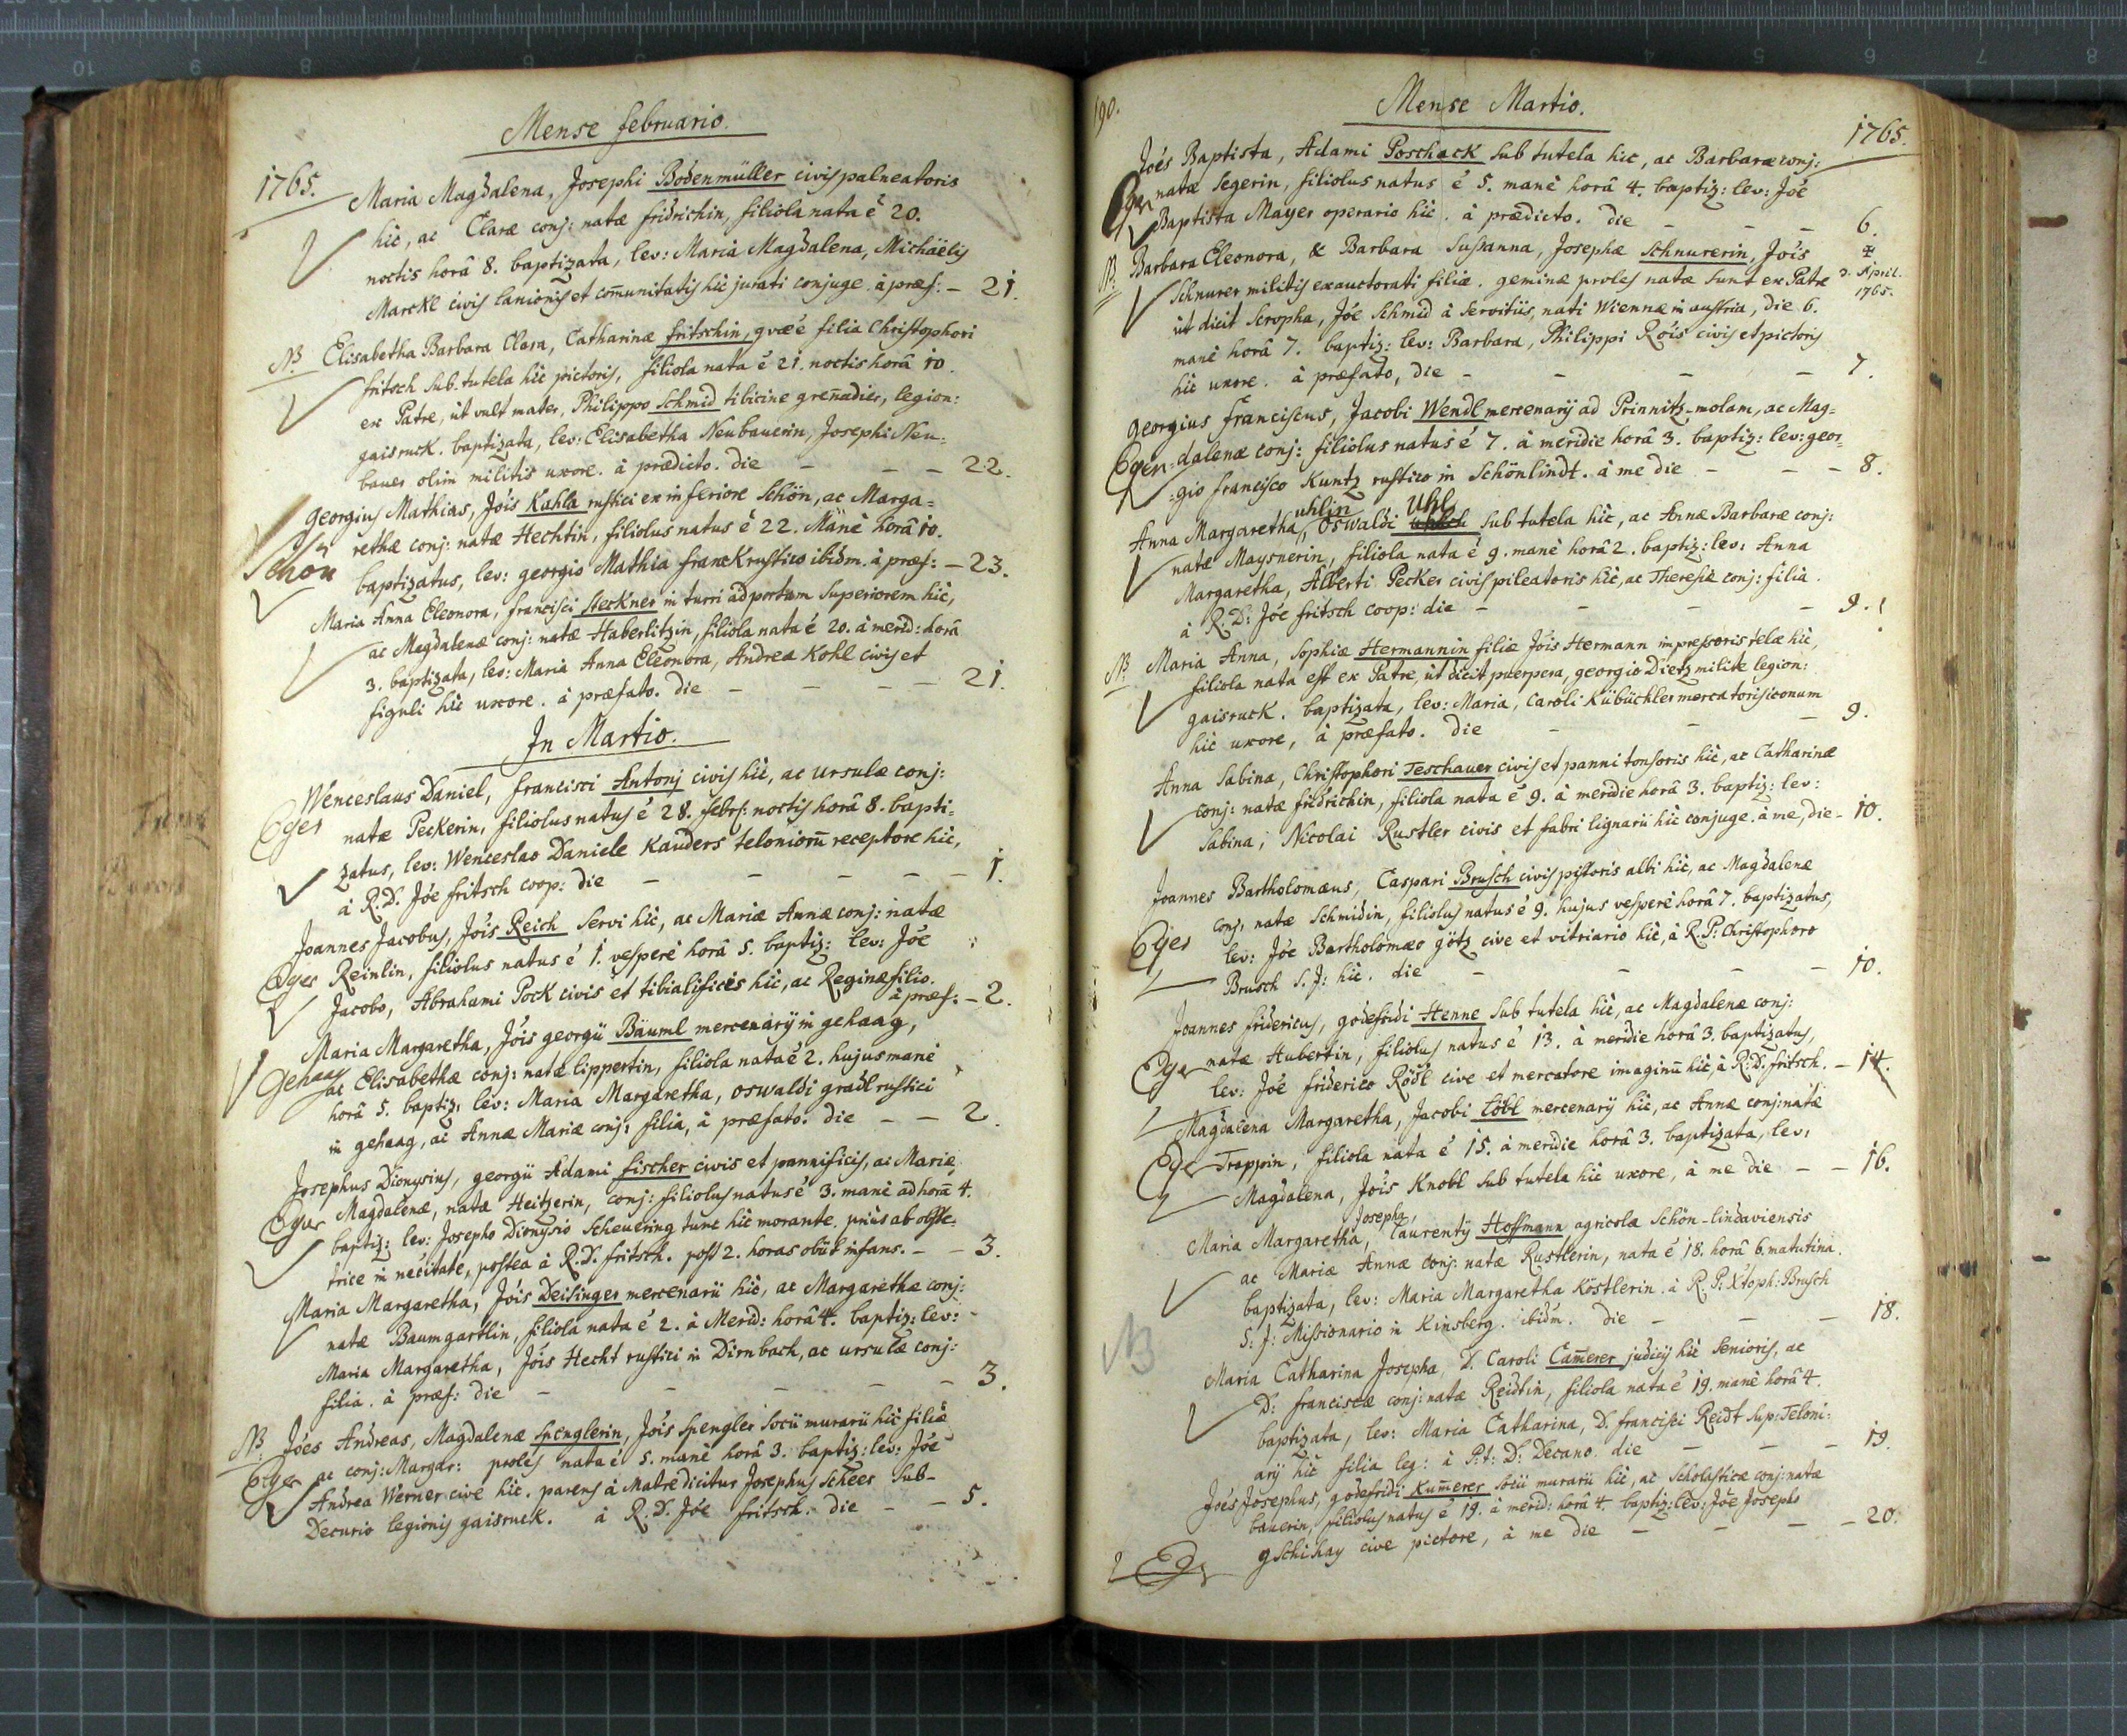 Mense februario.
1765. Maria Magdalena, Josephi Bodenmüller civis palneatoris
hic, ac Claræ conj: natæ fridrichin, filiola nata é 20.
noctis horâ 8. baptizata, lev: Maria Magdalena, Michäelis
Marckl civis lanionis et com̄unitatis hic jurati conjuge. à præf: – 21.
NB Elisabetha Barbara Clara, Catharinæ fritschin, quæ é filia Christophori
fritsch sub tutela hic pictoris, filiola nata é 21. noctis horâ 10.
ex Patre, ut vult mater, Philippo Schmid tibicine greñadier, legion:
gaisruck. baptizata, lev: Elisabetha Neubauerin, Josephi Neu=
bauer olim militis uxore. à prædicto. die – – – 22.
georgius Mathias, Jois Kahla rustici ex inferiore Schön, ac Marga=
Schön rethæ conj: natæ Hechtin, filiolus natus é 22. Mane horâ 10.
baptizatus, lev: georgio Mathia franck rustico ibidm. à præf: – 23.
Maria Anna Eleonora, francisci Steckner in turri ad portam superiorem hic,
ac Magdalenæ conj: natæ Haberlitzin, filiola nata é 20. à merid: horâ
3. baptizata, lev: Maria Anna Eleonora, Andreæ Kohl civis et
figuli hic uxore. à præfato. die – – – – 21.
In Martio.
Wenceslaus Daniel, francisci Antonj civis hic, ac Ursulæ conj:
Eger natæ Peckerin, filiolus natus é 28. febr: noctis horâ 8. bapti=
zatus, lev: Wenceslao Daniele Kauders teloniorū receptore hic,
à R.D. Jóe fritsch coop: die – – – – – 1.
Joannes Jacobus, Jóis Reich servi hic, ac Mariæ Annæ conj: natæ
Eger Reinlin, filiolus natus é 1. vesperè horâ 5. baptiz: lev: Jóe
Jacobo, Abrahami Pock civis et tibialificis hic, ac Reginæ filio.
à præf: – 2.
Maria Margaretha, Jóis georgii Bäuml mercenarÿ in gehaag,
Gehaag ac Elisabethæ conj: natæ lippertin, filiola nata é 2. hujus manè
horâ 5. baptiz: lev: Maria Margaretha, oswaldi gradl rustici
in gehaag, ac Annæ Mariæ conj: filia, à præfato. die – – 2.
Josephus Dionysius, georgii Adami fischer civis et pannificis, ac Mariæ
Eger Magdalenæ, natæ Heitzerin, conj: filiolus natus é 3. manè ad horā 4.
baptiz: lev: Josepho Dionysio Scheuering tunc hic morante. priùs ab obste=
trice in nećitate, postea à R.D. fritsch. post 2. horas obiit infans. – – 3.
Maria Margaretha, Jóis Deisinger mercenarii hic, ac Margarethæ conj:
natæ Baumgartlin, filiola nata é 2. à Merid: horâ 4. baptiz: lev:
Maria Margaretha, Jóis Hecht rustici in Dirnbach, ac ursulæ conj:
filia. à præf: die – – – – – 3.
NB Jóes Andreas, Magdalenæ Spenglerin, Jóis Spengler socii murarii hic filiæ
Eger ac conj: Margar: proles nata é 5. manè horâ 3. baptiz: lev: Jóe
Andrea Werner cive hic. parens à Matre dicitur Josephus Scheer Sub-
Decurio legionis gaisruck. à R.D. Jóe fritsch. die – – 5.
190. Mense Martio.
1765.
Joés Baptista, Adami Poschack sub tutela hic, ac Barbaræ conj:
Eger natæ Segerin, filiolus natus é 5. manè horâ 4. baptiz: lev: Jóe
Baptista Mayer operario hic. à prædicto. die – – – 6.
NB. Barbara Eleonora, & Barbara Susanna, Josephæ Schnurerin, Jóis
Schnurer militis exauctorati filiæ. geminæ proles natæ sunt ex Patre
3. April. 1765.
ut dicit scropha, Jóe Schmid à servitiis, nati Wiennæ in austria, die 6.
manè horâ 7. baptiz: lev: Barbara, Philippi Róis civis et pictoris
hic uxore. à præfato, die – – – – 7.
georgius franciscus, Jacobi Wendl mercenarÿ ad Prinnitz-molam, ac Mag=
Eger =dalenæ conj: filiolus natus é 7. à meridie horâ 3. baptiz: lev: geor=
=gio francisco Kuntz rustico in Schönlindt. à me die – – – 8.
uhlin Uhl
Anna Margaretha, oswaldi sub tutela hic, ac Annæ Barbaræ conj:
natæ Maysnerin, filiola nata é 9. manè horâ 2. baptiz: lev: Anna
Margaretha, Alberti Pecker civis pileatoris hic, ac Theresiæ conj: filia.
à R.D: Jóe fritsch coop: die – – – – 9.
NB. Maria Anna, Sophiæ Hermannin filiæ Jóis Hermann impressoris telæ hic,
filiola nata est ex Patre, ut dicit puerpera, georgio Dietz milite legion:
gaisruck. baptizata, lev: Maria, Caroli Kübüchler mercatoris iconum
hic uxore, à præfato. die – – – 9.
Anna Sabina, Christophori Teschauer civis et panni tonsoris hic, ac Catharinæ
conj: natæ fridrichin, filiola nata é 9. à meridie horâ 3. baptiz: lev:
Sabina, Nicolai Rustler civis et fabri lignarii hic conjuge. à me, die – 10.
Joannes Bartholomæus, Caspari Brusch civis pistoris albi hic, ac Magdalenæ
Eger conj: natæ Schmidin, filiolus natus é 9. hujus vesperè horâ 7. baptizatus,
lev: Jóe Bartholomæo götz cive et vitriario hic, à R.P: Christophoro
Brusch S.J: hic. die – – – – 10.
Joannes fridericus, godefridi Henne sub tutela hic, ac Magdalenæ conj:
Eger natæ Hubertin, filiolus natus é 13. à meridie horâ 3. baptizatus,
lev: Jóe friderico Rödl cive et mercatore imaginū hic, à R:D. fritsch. – 14.
Magdalena Margaretha, Jacobi Löbl mercenarÿ hic, ac Annæ conj: natæ
Eger Trappin, filiola nata é 15. à meridie horâ 3. baptizata, lev:
Magdalena, Jóis Knobl sub tutela hic uxore, à me die – – 16.
Josepha,
Maria Margaretha, Laurentÿ Hoffmann agricolæ Schön-lindaviensis
ac Mariæ Annæ conj: natæ Rustlerin, nata é 18. horâ 6. matutina.
baptizata, lev: Maria Margaretha Köstlerin. à R.P: Xtoph: Brusch
S.J: Missionario in Kinsberg. ibidm. die – – – 18.
NB
Maria Catharina Josepha, D. Caroli Cam̄erer judicÿ hic Senioris, ac
D: franciscæ conj: natæ Reidtin, filiola nata é 19. manè horâ 4.
baptizata, lev: Maria Catharina, D. francisci Reidt sup: Teloni:
arÿ hic filia leg: à P.t: D: Decano. die – – – 19.
Joés Josephus, godefridi Kum̄erer socii murarii hic, ac Scholasticæ conj: natæ
bauerin, filiolus natus é 19. à merid: horâ 4. baptiz: lev: Jóe Josepho
Eger gschihay cive pictore, à me die – – – – 20.